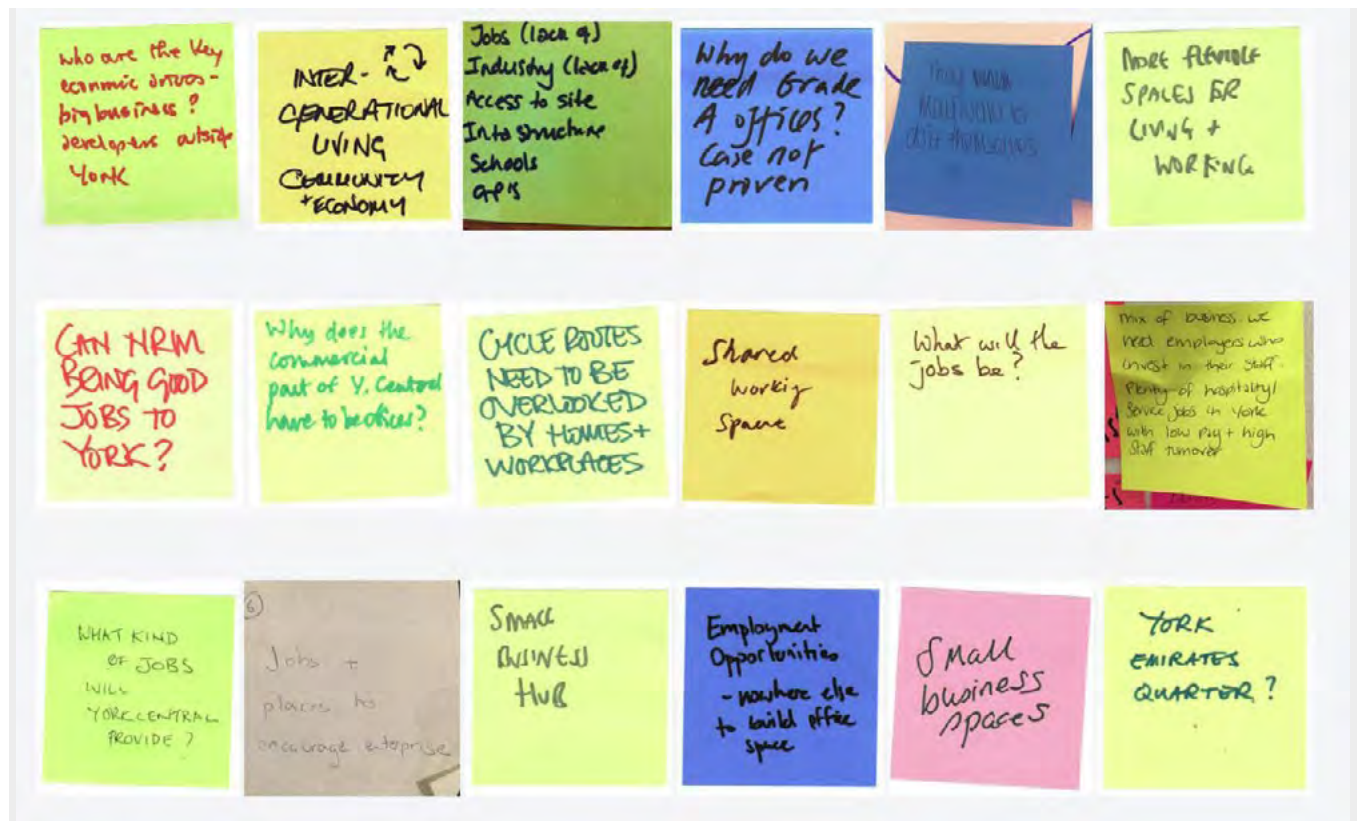 who are the key
economic drives -
big business?
developers outside
York
INTER-
GENERATIONAL
LIVING
COMMUNITY
+ ECONOMY
Jobs (lack of)
Industry (lack of)
Access to site
Infrastructure
Schools
GP's
Why do we
need Grade
A offices?
Case not
proven
They
to
do it themselves
MORE FLEXIBLE
SPACES FOR
LIVING +
WORKING
CAN NRM
BRING GOOD
JOBS TO
YORK?
Why does the
commercial
part of Y. Central
have to be offices?
CYCLE ROUTES
NEED TO BE
OVERLOOKED
BY HOMES +
WORKPLACES
Shared
working
Space
What will the
jobs be?
mix of business. we
need employers who
invest in their staff.
Plenty of hospitality/
Service jobs in York
with low pay + high
Staff turnover
WHAT KIND
OF JOBS
WILL
YORK CENTRAL
PROVIDE?
6
Jobs +
places to
encourage enterprise
SMALL
BUSINESS
HUB
Employment
Opportunities
- nowhere else
to build office
space
Small
business
spaces
YORK
EMIRATES
QUARTER?